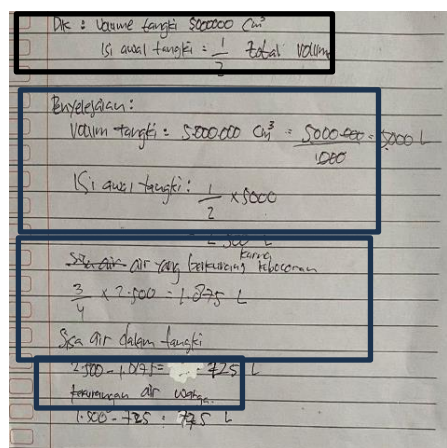 Dik : Volume tangki 5000000 Cm³
Isi awal tangki = 1/2 total volume
Penyelesaian :
Volum tangki = 5.000.000 Cm³ = 5000.000/1000 = 5000 L
Isi awal tangki : 1/2 x 5000
2.500 L
Sisa air air yang berkurang karna kebocoran
3/4 x 2.500 = 1.875 L
Sisa air dalam tangki
2.500 - 1.0175 = 725 L
kekurangan air warga
1.500 - 725 = 775 L